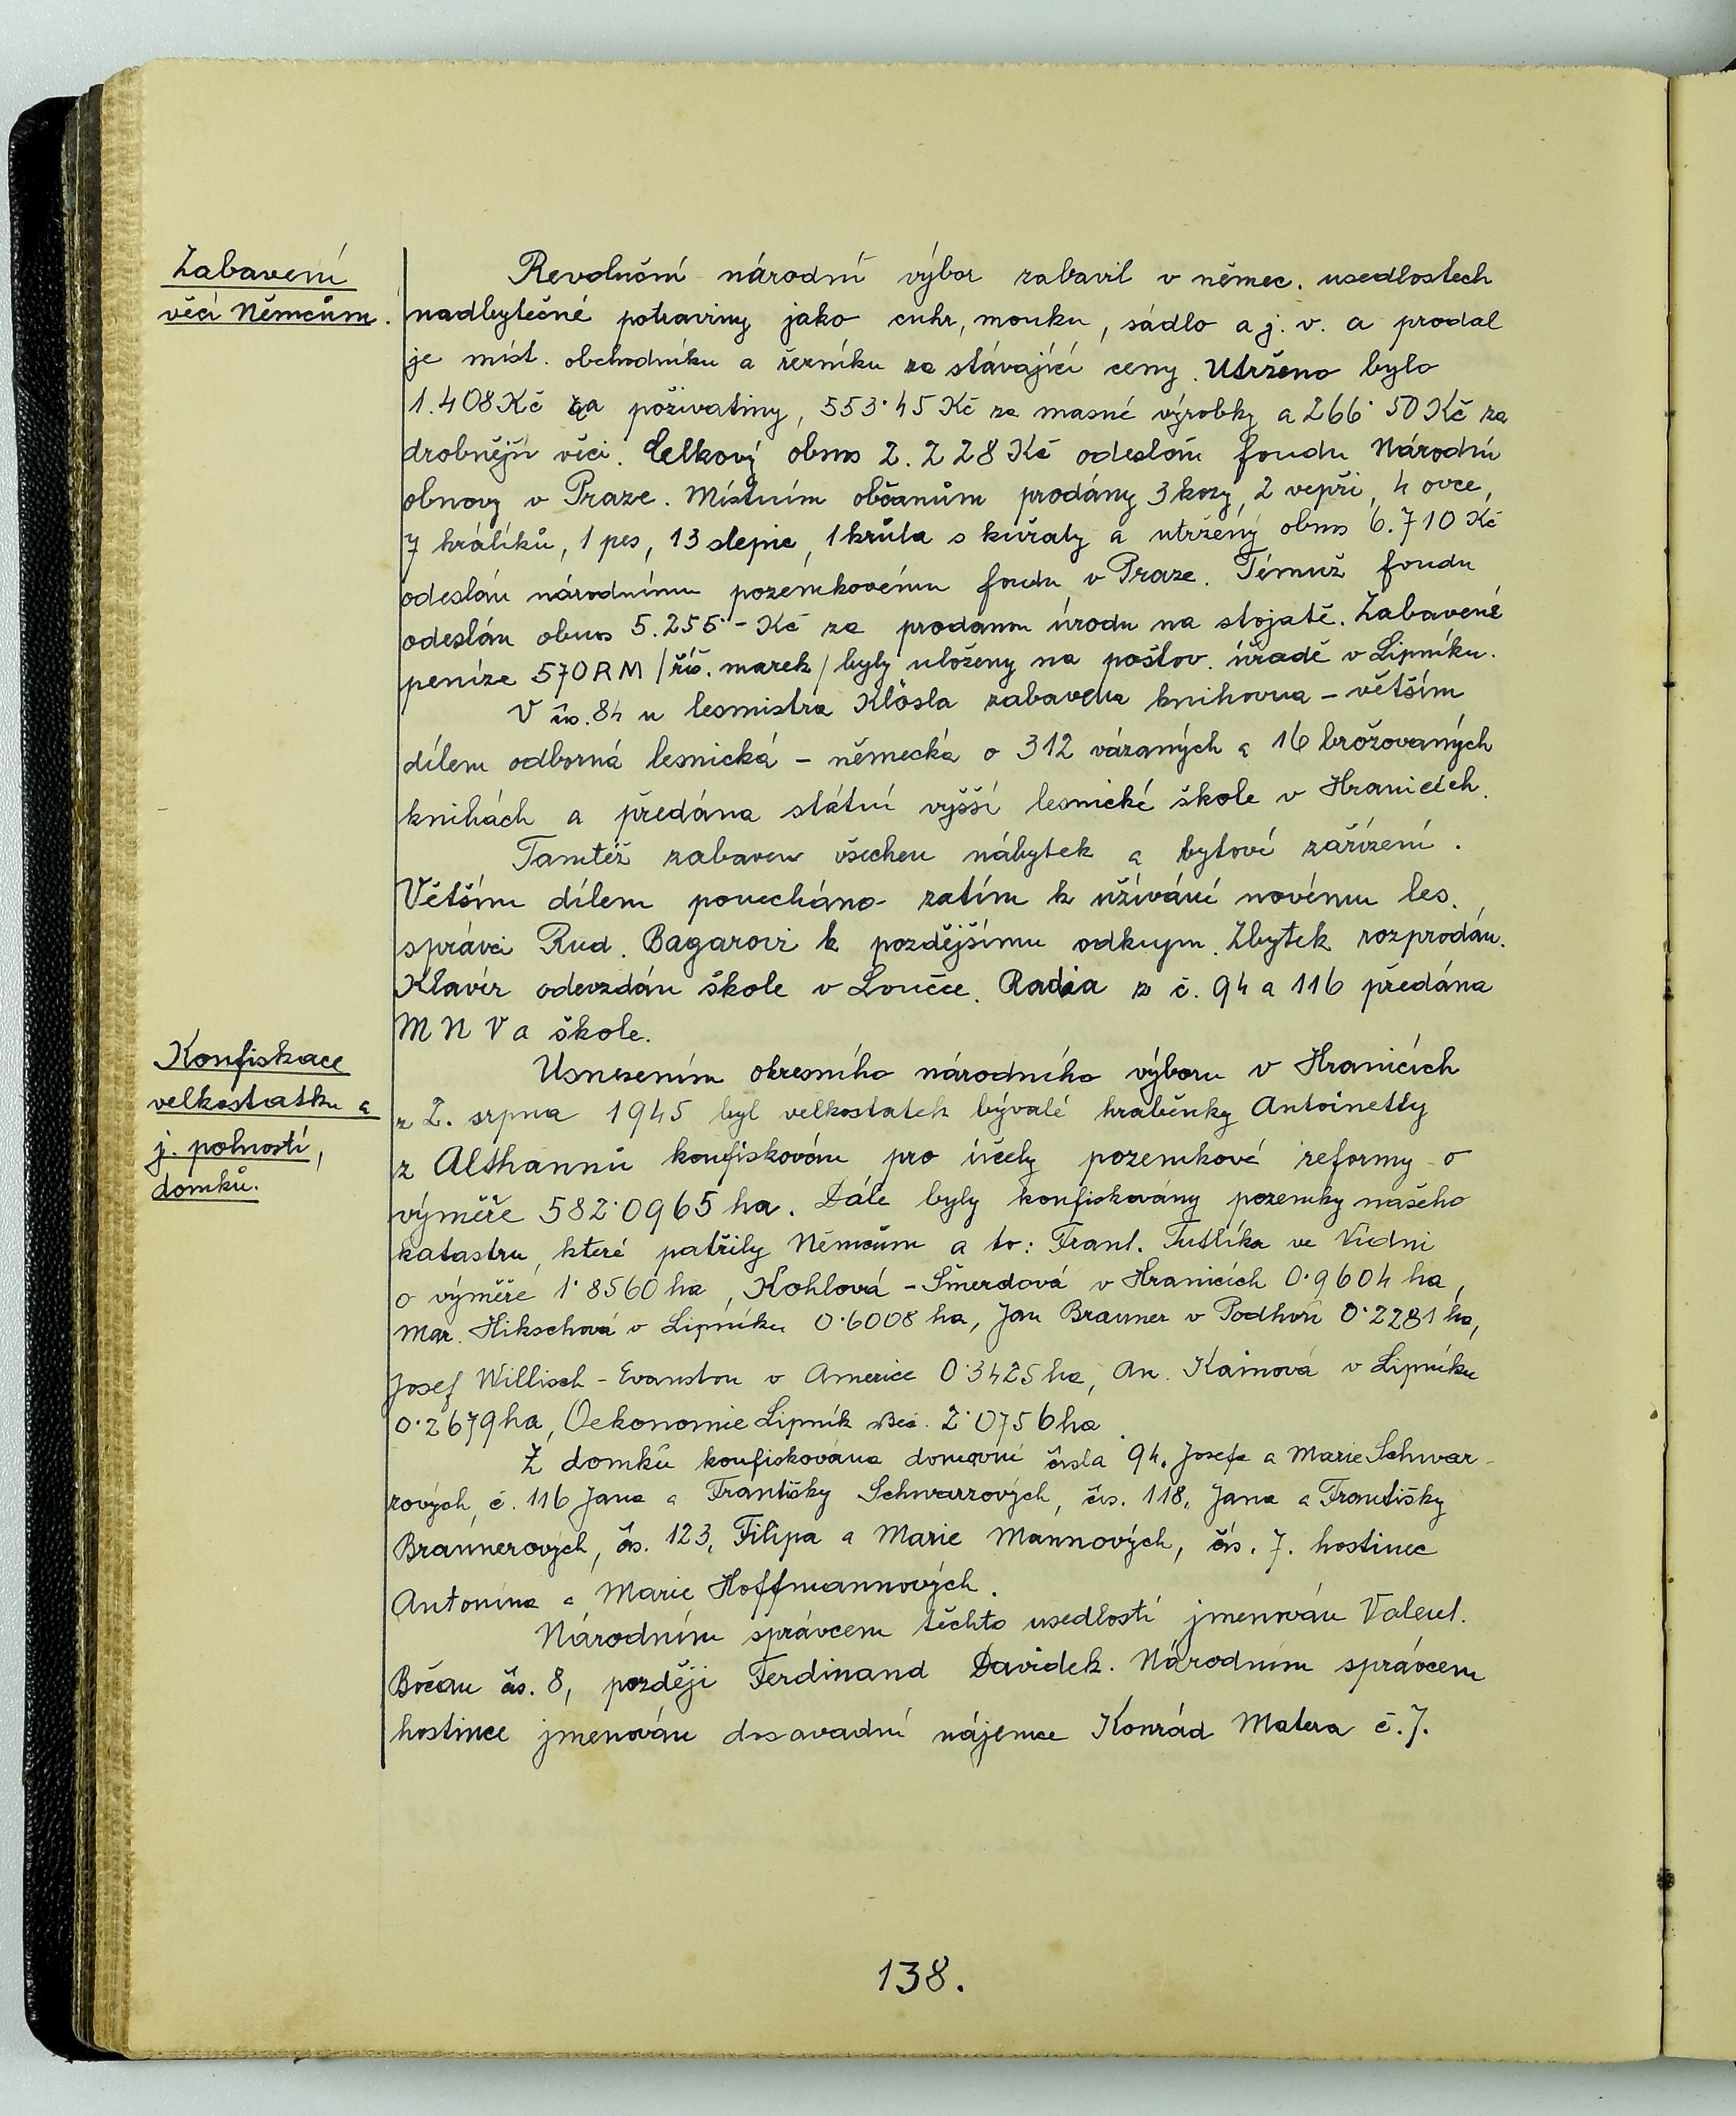 Zabavení
věcí Němcům.
Revoluční národní výbor zabavil v němec. usedlostech
nadbytečné potraviny jako cukr, mouku, sádlo a j. v. a prodal
je míst. obchodníku a řezníku za stávající ceny. Utrženo bylo
1.408 Kč za poživatiny, 553·45 Kč za masné výrobky a 266·50 Kč za
drobnější věci. Celkový obnos 2.228 Kč odeslán fondu Národní
obnovy v Praze. Místním občanům prodány 3 kozy, 2 vepři, 4 ovce,
7 králíků, 1 pes, 13 slepic, 1 krůta s kuřaty a utržený obnos 6.710 Kč
odeslán národnímu pozemkovému fondu v Praze. Témuž fondu
odeslán obnos 5.255·- Kč za prodanou úrodu na stojatě. Zabavené
peníze 570 RM /říš. marek/ byly uloženy na poštov. úřadě v Lipníku.
V čís. 84 u lesmistra Klösla zabavena knihovna - větším
dílem odborná lesnická - německá o 312 vázaných a 16 brožovaných
knihách a předána státní vyšší lesnické škole v Hranicích.
Tamtéž zabaven všechen nábytek a bytové zařízení.
Větším dílem ponecháno zatím k užívání novému les.
správci Rud. Bagarovi k pozdějšímu odkupu. Zbytek rozprodán.
Klavír odevzdán škole v Loučce. Radia z č. 94 a 116 předána
M N V a škole.
Konfiskace
velkostatku a
j. polností,
domků.
Usnesením okresního národního výboru v Hranicích
z 2. srpna 1945 byl velkostatek bývalé hraběnky Antoinetty
z Althannů konfiskován pro účely pozemkové reformy o
výměře 582·0965 ha. Dále byly konfiskovány pozemky našeho
katastru, které patřily Němcům a to: Frant. Tutlíka ve Vídni
o výměře 1·8560 ha, Kohlová - Šmerdová v Hranicích 0·9604 ha,
Mar. Hikschová v Lipníku 0·6008 ha, Jan Brauner v Podhoří 0·2281 ha,
Josef Willisch - Evanston v Americe 0·3425 ha, An. Kainová v Lipníku
0·2679 ha, Oekonomie Lipník n/Beč. 2·0756 ha.
Z domků konfiskována domovní čísla 94, Josefa a Marie Schwar-
zových, č. 116 Jana a Františky Schwarzových, čís. 118, Jana a Františky
Braunerových, čís. 123, Filipa a Marie Mannových, čís. 7. hostinec
Antonína a Marie Hoffmannových.
Národním správcem těchto usedlostí jmenován Valent.
Bočan čís. 8, později Ferdinand Davidek. Národním správcem
hostince jmenován dosavadní nájemce Konrád Matera č. 7.
138.